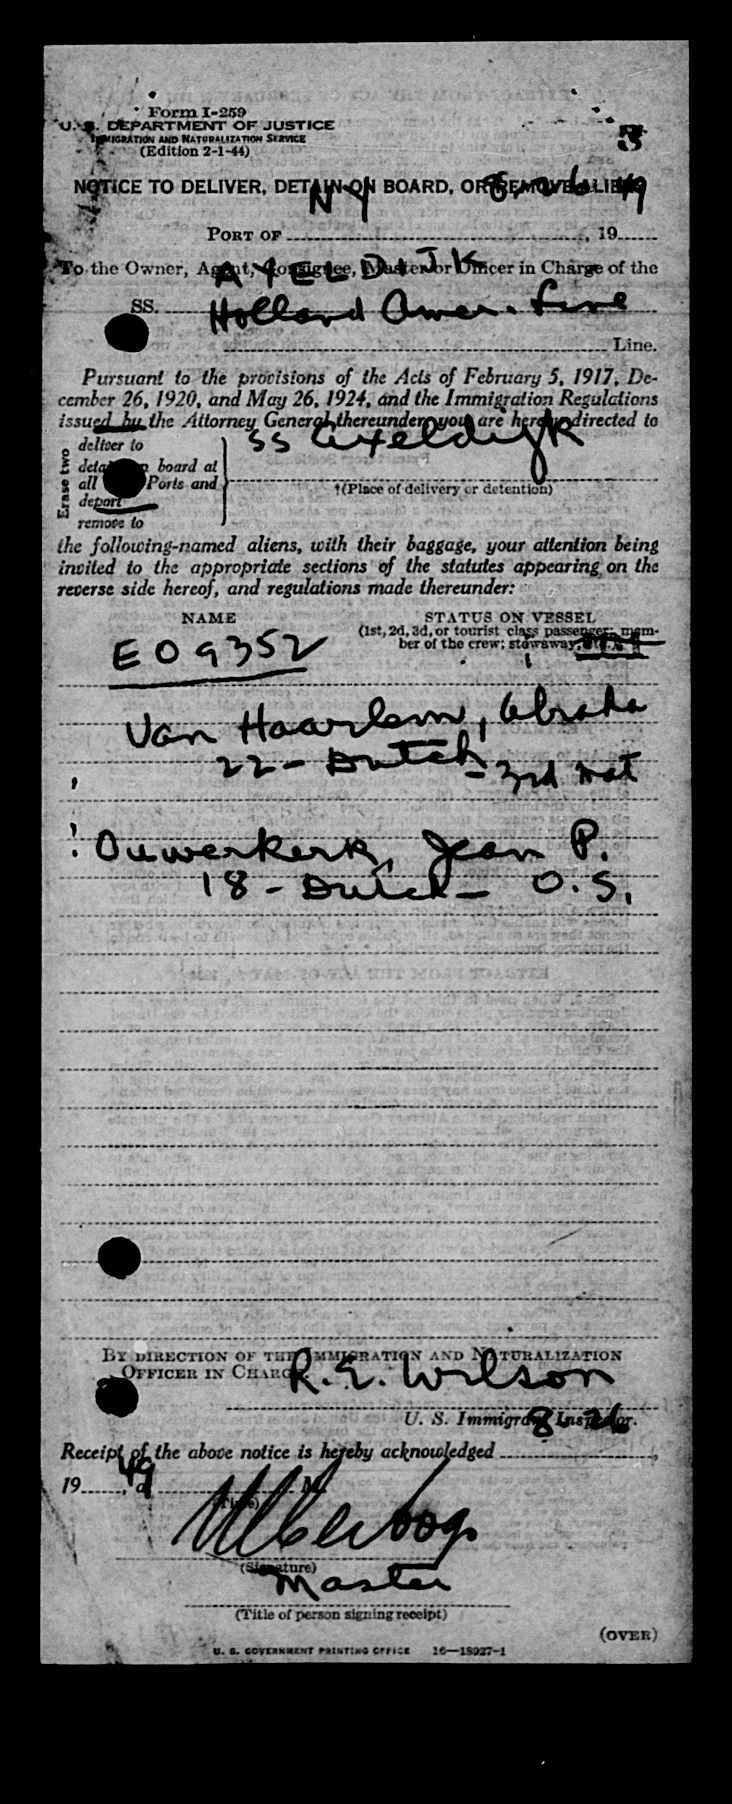 Form I-259
U. S. DEPARTMENT OF JUSTICE
IMMIGRATION AND NATURALIZATION SERVICE
(Edition 2-1-44)
NOTICE TO DELIVER, DETAIN ON BOARD, OR REMOVE ALIENS
N Y 8-26 49
PORT OF , 19
To the Owner, Agent, Consignee, Master or Officer in Charge of the
SS. AXELDIJK
Holland Amer. Line
Line.
Pursuant to the provisions of the Acts of February 5, 1917, De-
cember 26, 1920, and May 26, 1924, and the Immigration Regulations
issued by the Attorney General thereunder, you are hereby directed to
Erase two
deliver to
detain on board at
all Ports and
deport
remove to
SS Axeldijk
†(Place of delivery or detention)
the following-named aliens, with their baggage, your attention being
invited to the appropriate sections of the statutes appearing on the
reverse side hereof, and regulations made thereunder:
NAME STATUS ON VESSEL
(1st, 2d, 3d, or tourist class passenger; mem-
ber of the crew; stowaway; etc.)
E09352
Van Haarlem, Abraha
22 - Dutch - 3rd mat
Ouwerkerk, Jean P.
18 - Dutch - O.S.
BY DIRECTION OF THE IMMIGRATION AND NATURALIZATION
OFFICER IN CHARGE
R. E. Wilson
U. S. Immigrant Inspector.
8-26
Receipt of the above notice is hereby acknowledged ,
1949, at M.
(Time)
(Signature)
Master
(Title of person signing receipt)
(OVER)
U. S. GOVERNMENT PRINTING OFFICE 16—18927-1